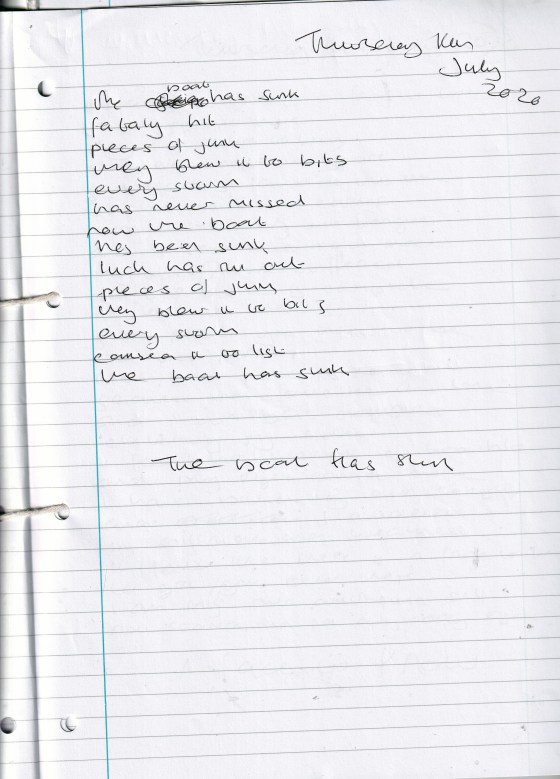 Thursday
July
2020
the boat has sunk
fataly hit
pieces of junk
they blew it to bits
every storm
has never missed
now the boat
hes been sunk
luck has run out
pieces of junk
they blew it to bits
every storm
caused it to list
the boat has sunk
The boat has sunk